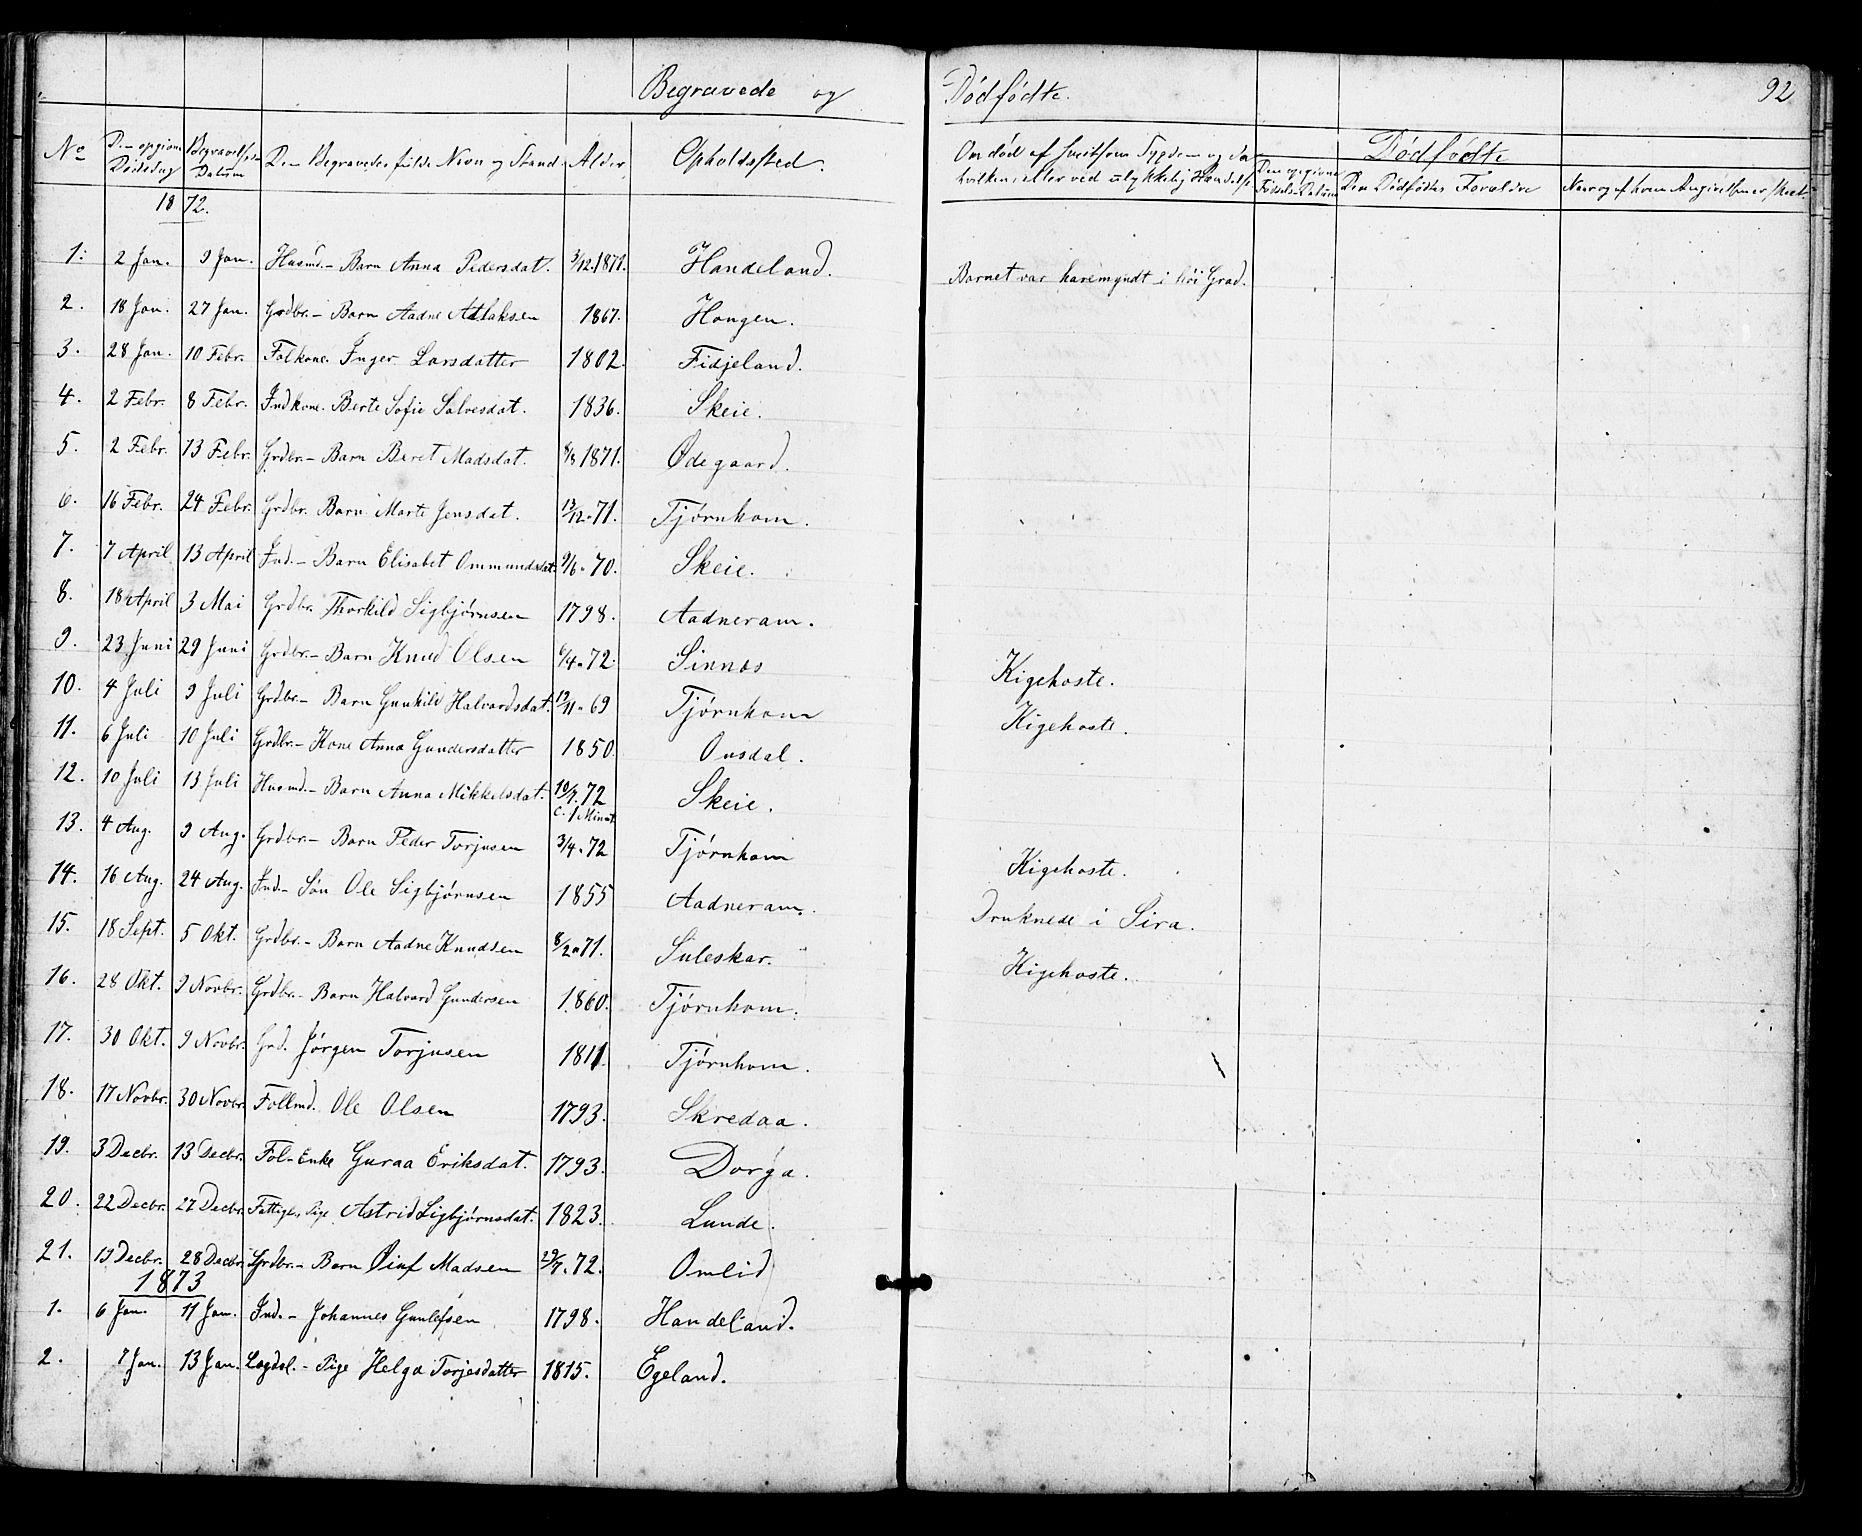 Begravede og Dødfødte. 92
No Den opgivne Dødsdag Begravelses Datum Den Begravedes fulde Navn og Stand Alder Opholdssted. Om død af smitsom Sygdom og da hvilken, eller ved ulykkelig Hændelse Den opgivne Fødsels-Datum Dødfødte Den Dødfødtes Forældre Naar og af hvem Angivelsen er skeet
1872.
1. 2 Jan. 9 Jan. Husmd.- Barn Anna Pedersdat. 3/12.1871. Handeland. Barnet var haremyndt i høi Grad.
2. 18 Jan. 27 Jan. Grdbr.- Barn Aadne Atlaksen 1867. Hongen.
3. 28 Jan. 10 Febr. Folkone. Inger Larsdatter 1802. Fidjeland.
4. 2 Febr. 8 Febr. Indkone. Berte Sofie Salvesdat. 1836. Skeie.
5. 2 Febr. 13 Febr. Grdbr.- Barn Beret Madsdat. 8/8 1871. Ødegaard.
6. 16 Febr. 24 Febr. Grdbr. Barn Marte Jensdat. 13/12-71. Tjørnhom.
7. 7 April 13 April Ind.- Barn Elisabet Ommundsdat. 9/6-70. Skeie.
8. 18 April 3 Mai Grdbr. Thorkild Sigbjørnsen 1798. Aadneram.
9. 23 Juni 29 Juni Grdbr.- Barn Knud Olsen 6/4-72. Sinnes Kigehoste.
10. 4 Juli 9 Juli Grdbr.- Barn Gunhild Halvardsdat. 12/11-69 Tjørnhom Kigehoste.
11. 6 Juli 10 Juli Grdbr.- Kone Anna Gundersdatter 1850. Ousdal.
12. 10 Juli 13 Juli Husmd.- Barn Anna Mikkelsdat. 10/7.72 c. 1 Minut. Skeie.
13. 4 Aug. 9 Aug. Grdbr.- Barn Peder Torjusen 3/4-72 Tjørnhom Kigehoste.
14. 16 Aug. 24 Aug. Ind.- Søn Ole Sigbjørnsen 1855 Aadneram. Druknede i Sira.
15. 18 Sept. 5 Okt. Grdbr.- Barn Aadne Knudsen 8/2-71. Suleskar. Kigehoste.
16. 28 Okt. 9 Novbr. Grdbr.- Barn Halvard Gundersen 1860. Tjørnhom.
17. 30 Okt. 9 Novbr. Grd. Jørgen Torjusen 1811. Tjørnhom.
18. 17 Novbr. 30 Novbr. Follmd. Ole Olsen 1793. Skredaa.
19. 3 Decbr. 13 Decbr. Fol-Enke Guraa Eriksdat. 1793. Dorga.
20. 22 Decbr. 27 Decbr. Fattigl. Pige Astrid Sigbjørnsdat. 1823. Lunde.
21. 19 Decbr. 28 Decbr. Grdbr.- Barn Øiuf Madsen 29/7.72. Omlid
1873
1. 6 Jan. 11 Jan. Ind.- Johannes Gunlefsen 1798. Handeland.
2. 7 Jan. 13 Jan. Lægdsl.- Pige Helga Torjesdatter 1815. Egeland.